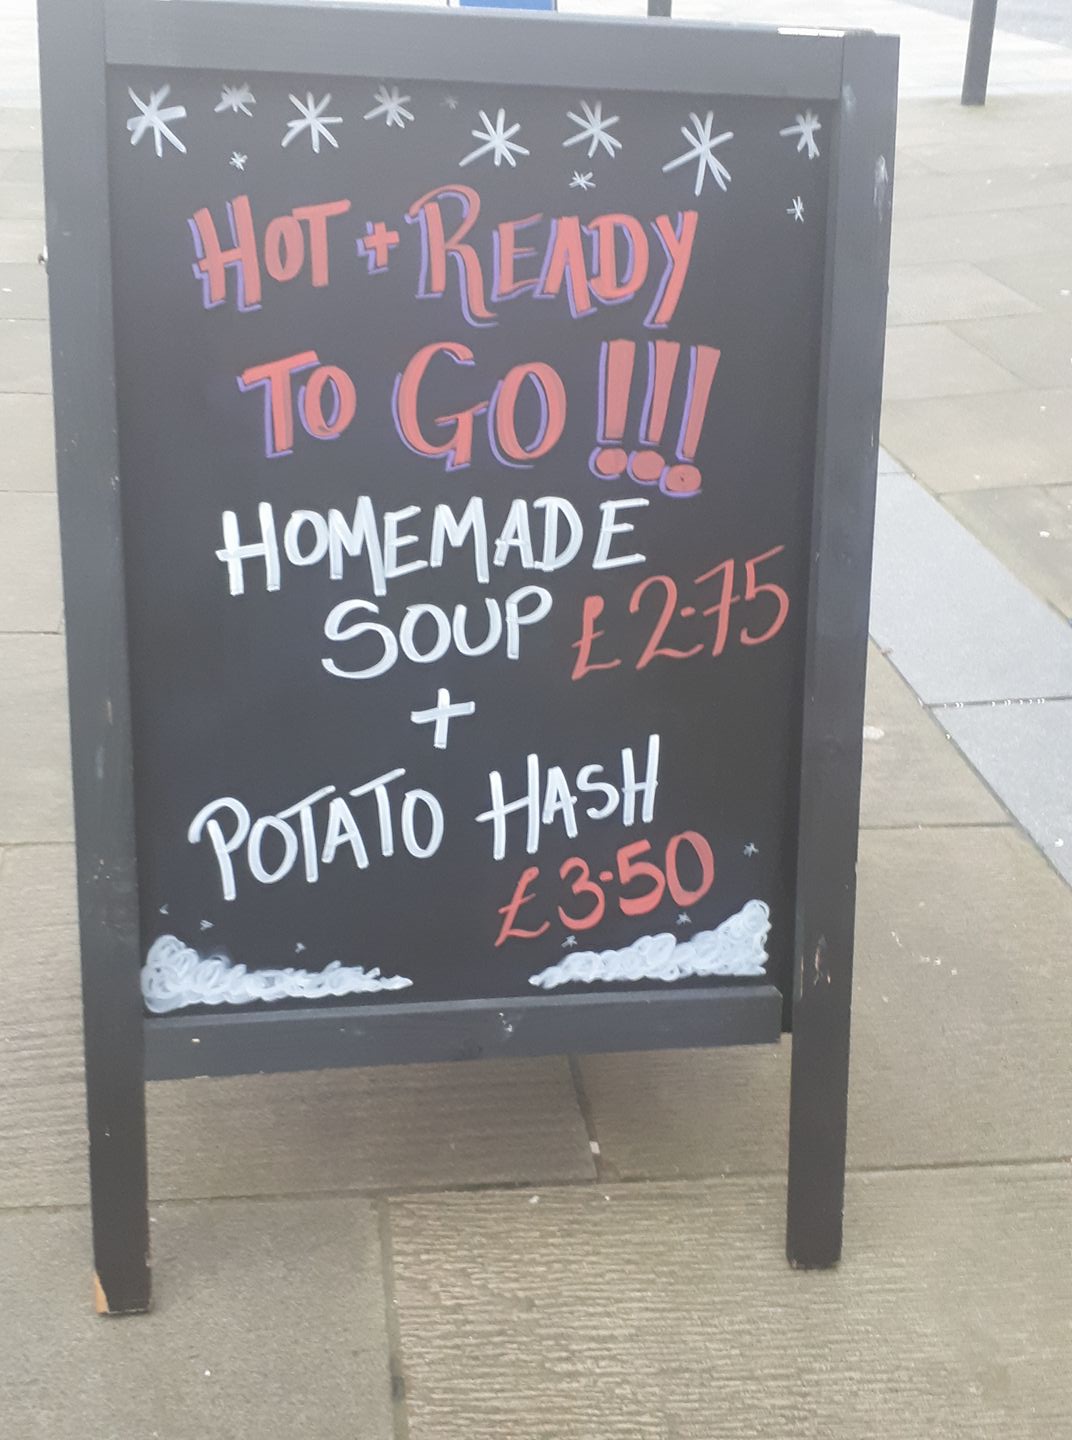 HOT + READY
TO GO !!!
HOMEMADE
SOUP £2.75
+
POTATO HASH
£3.50